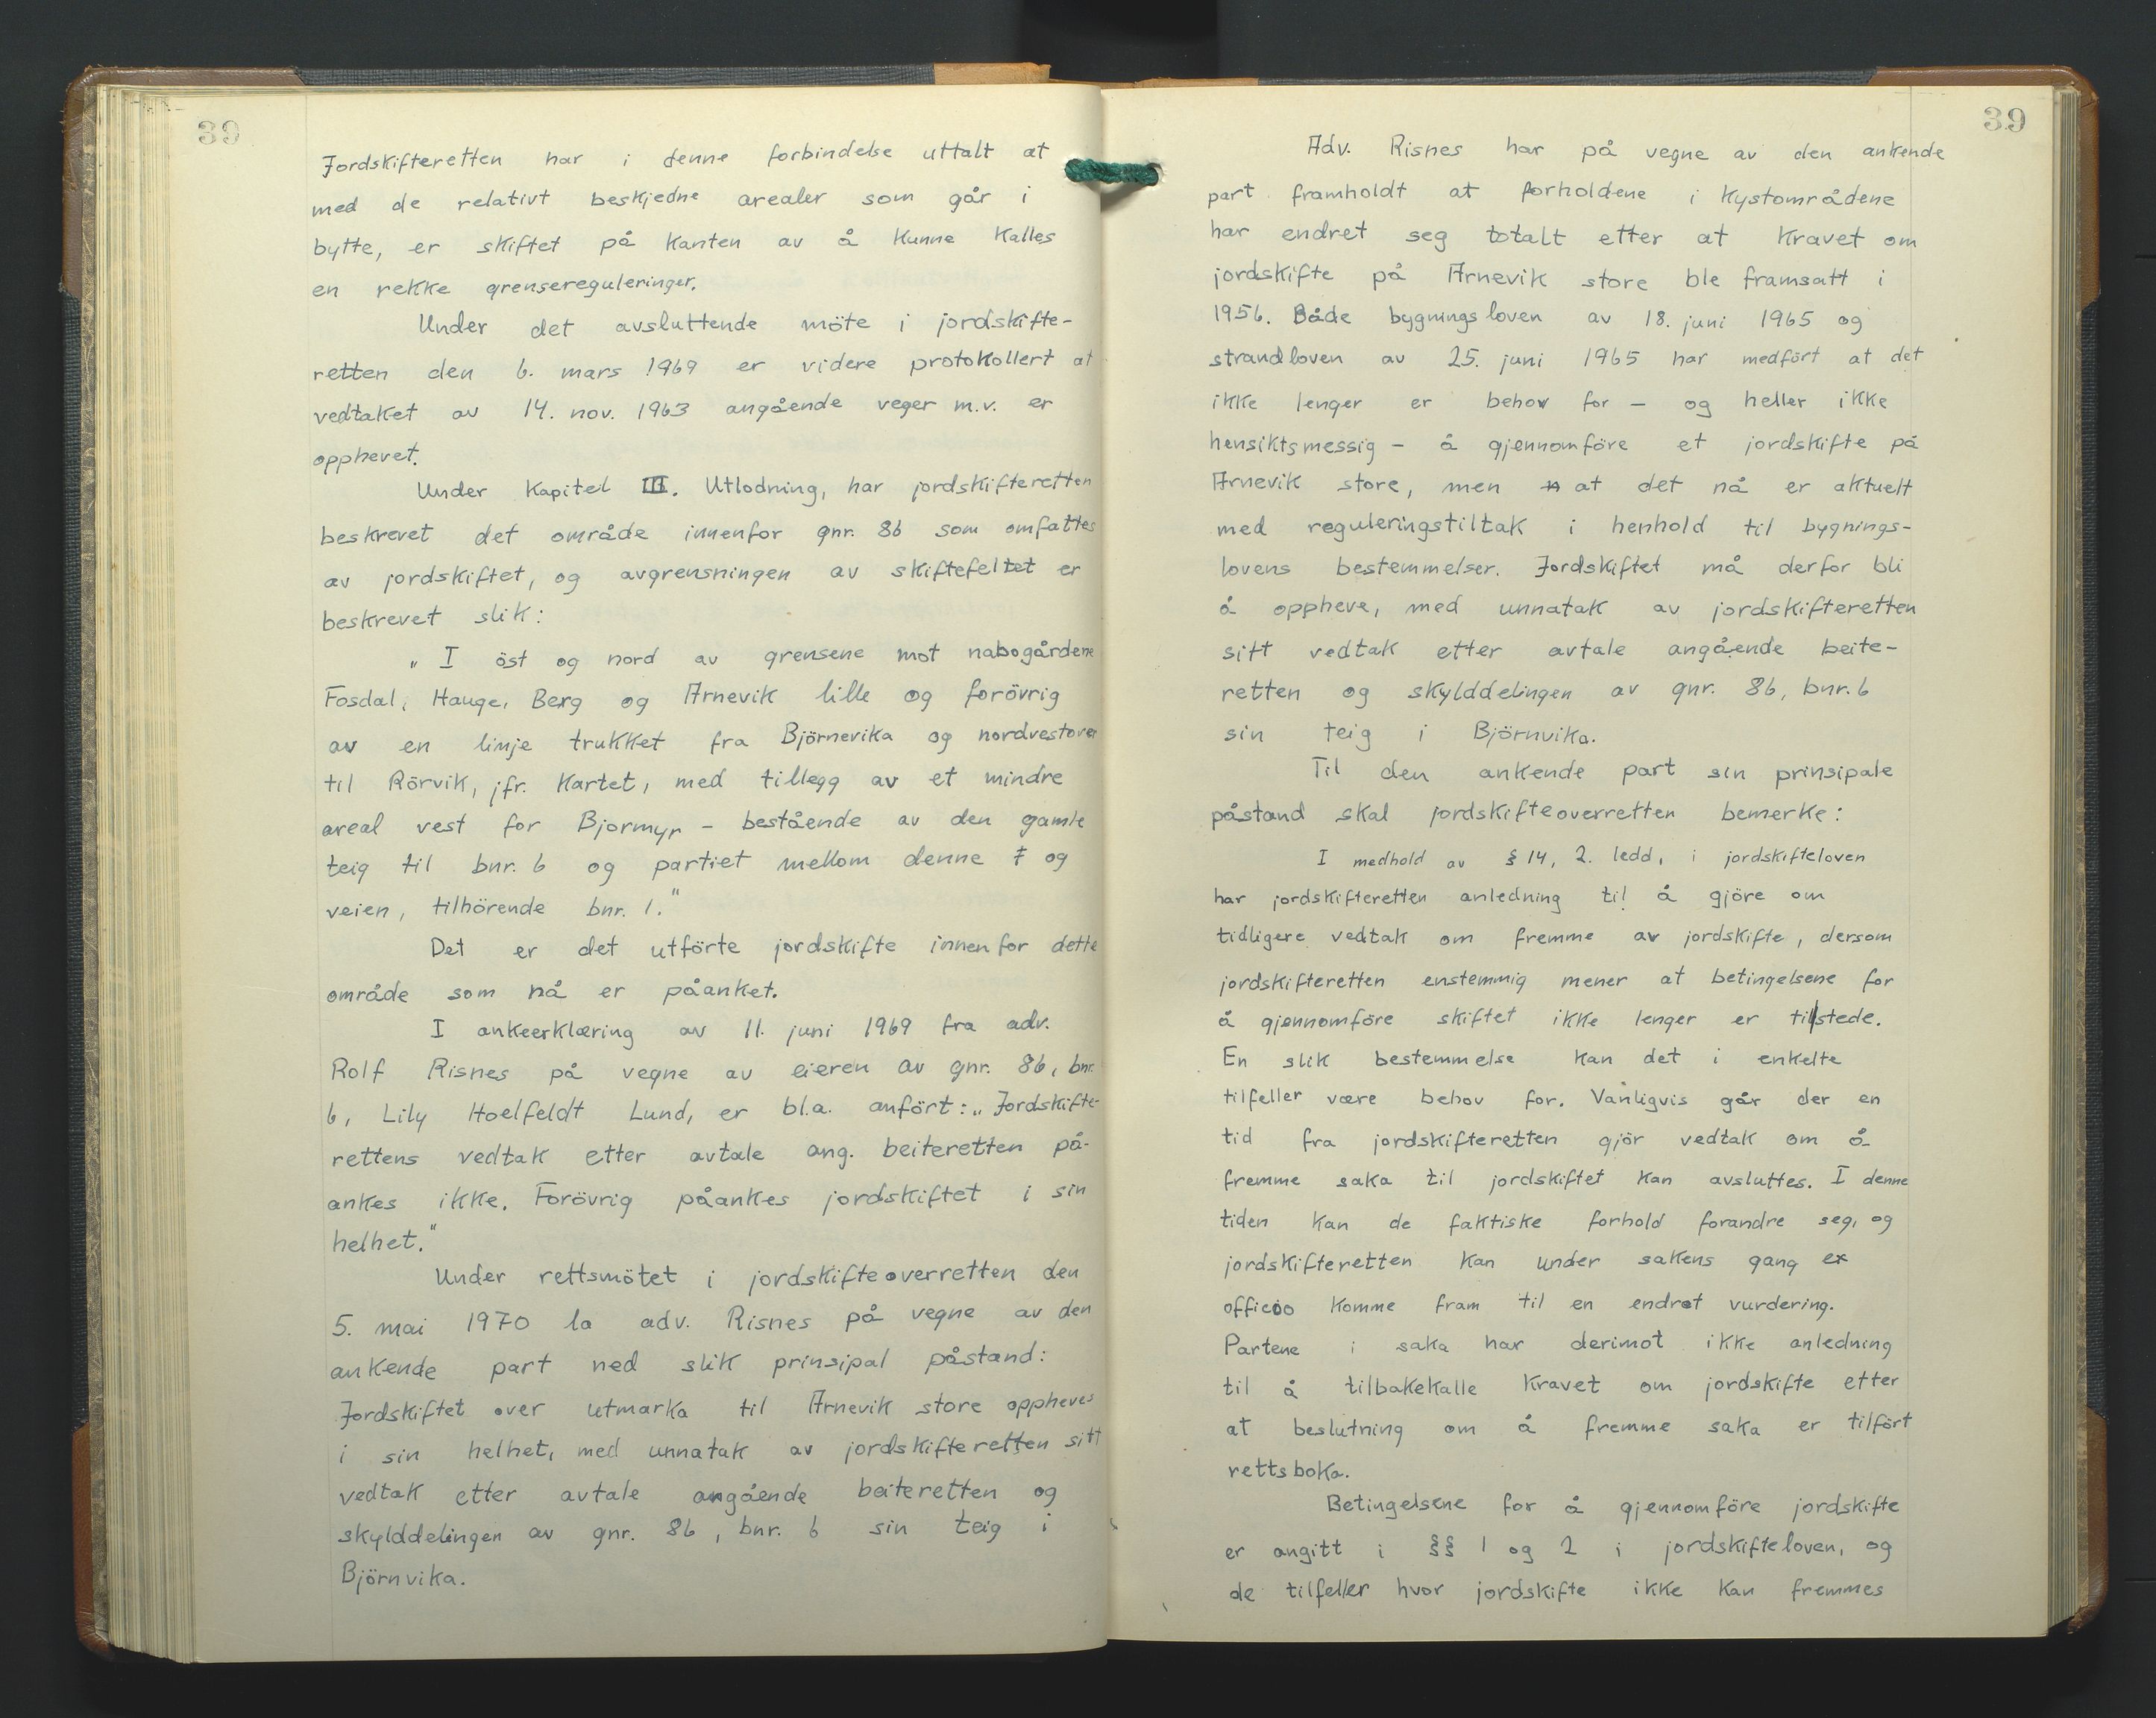 39
Jordskifteretten har i denne forbindelse uttalt at
med de relativt beskjedne arealer som går i
bytte, er skiftet på kanten av å kunne kalles
en rekke grensereguleringer.
Under det avsluttende möte i jordskifte-
retten den 6. mars 1969 er videre protokollert at
vedtaket av 14. nov. 1963 angående veger m.v. er
opphevet.
Under Kapitel III. Utlodning, har jordskifteretten
beskrevet det område innenfor gnr. 86 som omfattes
av jordskiftet, og avgrensningen av skiftefeltet er
beskrevet slik:
„ I öst og nord av grensene mot nabogårdene
Fosdal, Hauge, Berg og Arnevik lille og forövrig
av en linje trukket fra Björnevika og nordvestover
til Rörvik, jfr. Kartet, med tillegg av et mindre
areal vest for Bjormyr - bestående av den gamle
teig til bnr. 6 og partiet mellom denne og
veien, tilhörende bnr. 1."
Det er det utförte jordskifte innenfor dette
område som nå er påanket.
I ankeerklæring av 11. juni 1969 fra adv.
Rolf Risnes på vegne av eieren av gnr. 86, bnr.
6, Lily Hoelfeldt Lund, er bl.a. anfört: „Jordskifte-
rettens vedtak etter avtale ang. beiteretten på-
ankes ikke. Forövrig påankes jordskiftet i sin
helhet."
Under rettsmötet i jordskifteoverretten den
5. mai 1970 la adv. Risnes på vegne av den
ankende part ned slik prinsipal påstand:
Jordskiftet over utmarka til Arnevik store oppheves
i sin helhet, med unnatak av jordskifteretten sitt
vedtak etter avtale angående beiteretten og
skylddelingen av gnr. 86, bnr. 6 sin teig i
Björnvika.
39
Adv. Risnes har på vegne av den ankende
part framholdt at forholdene i kystområdene
har endret seg totalt etter at kravet om
jordskifte på Arnevik store ble framsatt i
1956. Både bygningsloven av 18. juni 1965 og
strandloven av 25. juni 1965 har medfört at det
ikke lenger er behov for - og heller ikke
hensiktsmessig - å gjennomföre et jordskifte på
Arnevik store, men at det nå er aktuelt
med reguleringstiltak i henhold til bygnings-
lovens bestemmelser. Jordskiftet må derfor bli
å oppheve, med unnatak av jordskifteretten
sitt vedtak etter avtale angående beite-
retten og skylddelingen av gnr. 86, bnr. 6
sin teig i Björnvika.
Til den ankende part sin prinsipale
påstand skal jordskifteoverretten bemerke:
I medhold av § 14, 2. ledd, i jordskifteloven
har jordskifteretten anledning til å gjöre om
tidligere vedtak om fremme av jordskifte, dersom
jordskifteretten enstemmig mener at betingelsene for
å gjennomföre skiftet ikke lenger er tilstede.
En slik bestemmelse kan det i enkelte
tilfeller være behov for. Vanligvis går der en
tid fra jordskifteretten gjör vedtak om å
fremme saka til jordskiftet kan avsluttes. I denne
tiden kan de faktiske forhold forandre seg, og
jordskifteretten kan under sakens gang ex
officio komme fram til en endret vurdering.
Partene i saka har derimot ikke anledning
til å tilbakekalle kravet om jordskifte etter
at beslutning om å fremme saka er tilfört
rettsboka.
Betingelsene for å gjennomföre jordskifte
er angitt i §§ 1 og 2 i jordskifteloven, og
de tilfeller hvor jordskifte ikke kan fremmes